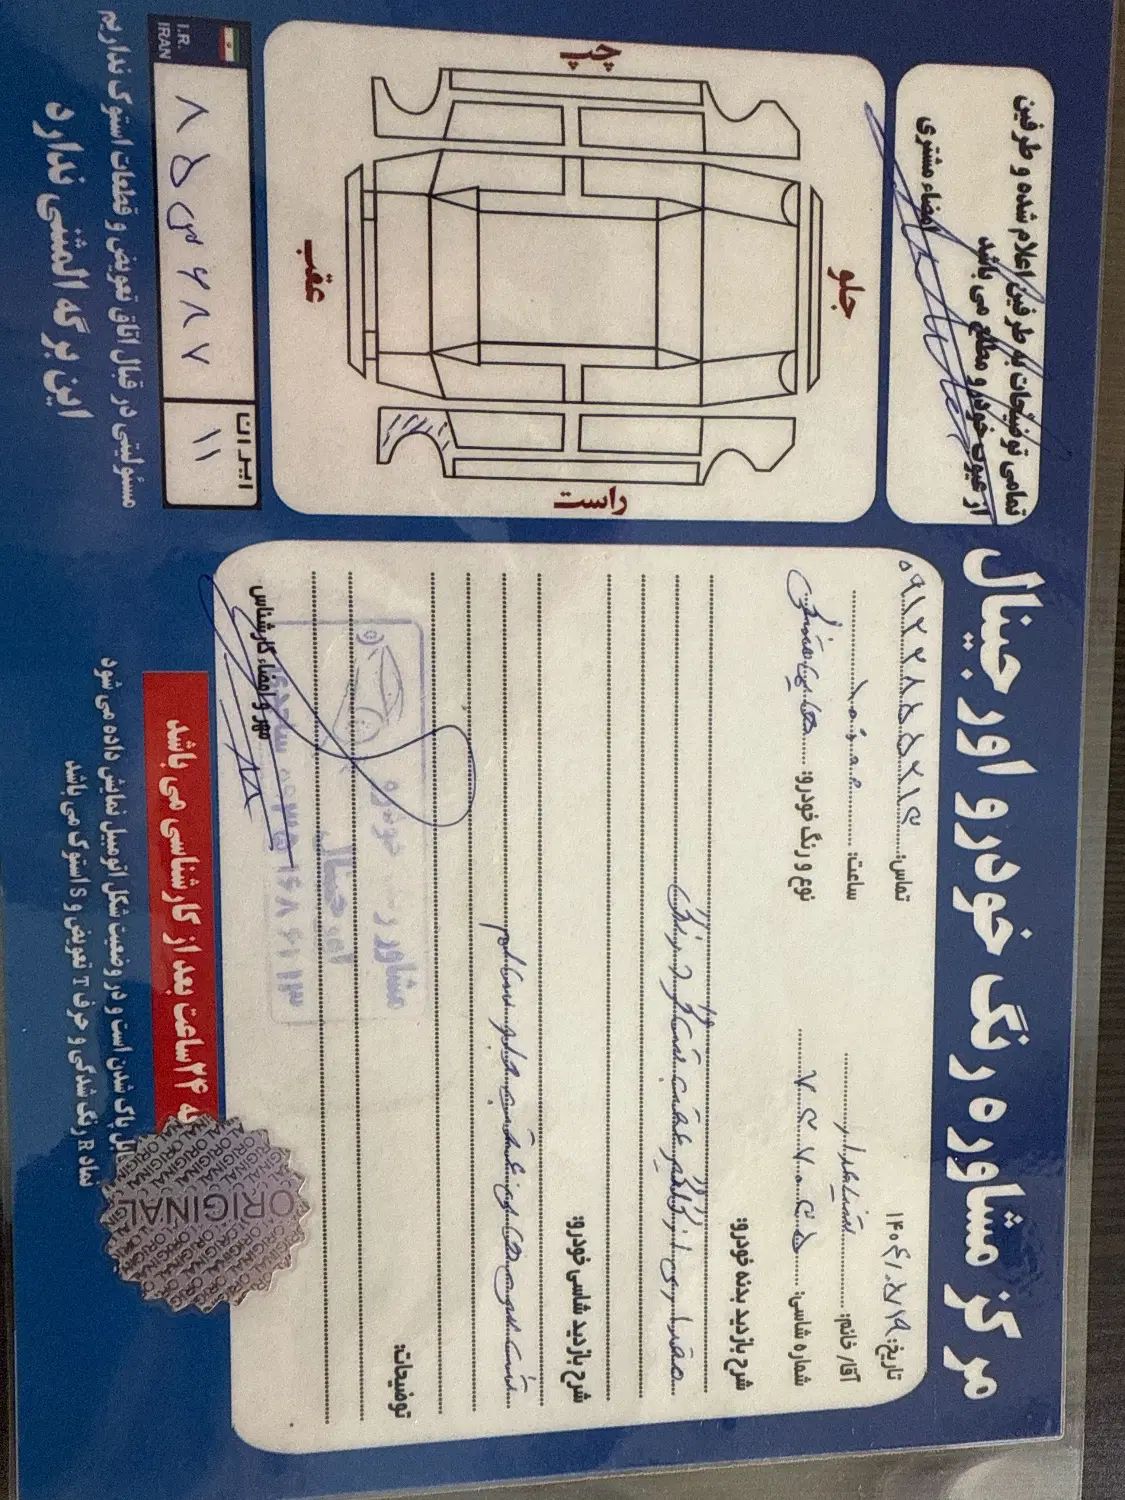 مرکز مشاوره رنگ خودرو اورجینال
تمامی توضیحات به طرفین اعلام شده و طرفین
از عیوب خودرو مطلع می باشد
امضاء مشتری
تاریخ: ۱۴۰۴/۰۷/۱۹
تماس: ۰۹۱۲۲۸۵۵۲۱۵
آقا/ خانم:
ساعت:
شماره شاسی:
نوع و رنگ خودرو:
شرح بازدید بدنه خودرو:
مقداری از گلگیر عقب شاگرد رنگ
شرح بازدید شاسی خودرو:
شاسی های عقب جلو سالم
توضیحات:
مهر و امضاء کارشناس
مشاوره خودرو
چپ
جلو
عقب
راست
I.R.
IRAN
۸۵س۶۸۷
ایران
۱۱
۲۴ ساعت بعد از کارشناسی می باشد
پاک شدن است و در وضعیت شکل اتومبیل نمایش داده می شود
نماد R رنگ شدگی و حرف T تعویض و S استوک می باشد
مسئولیتی در قبال اتاق تعویض و قطعات استوک نداریم
این برگه المثنی ندارد
ORIGINAL